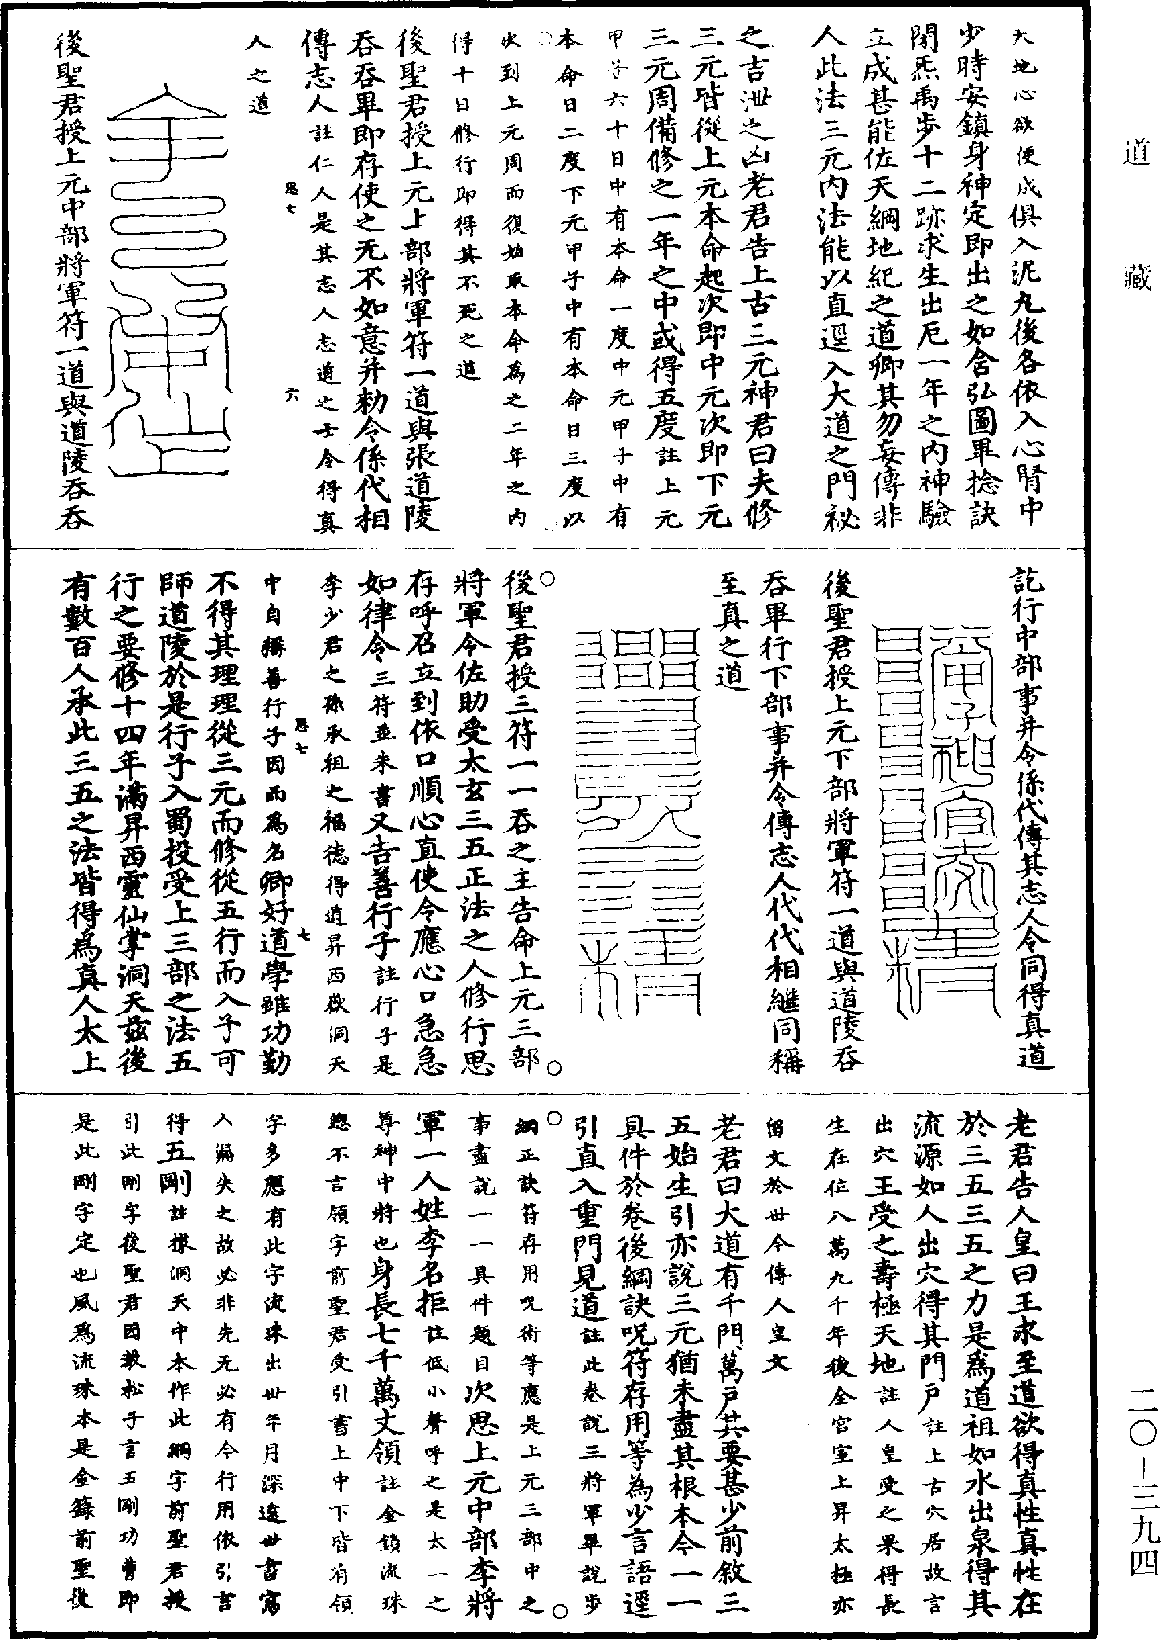 道藏
大地心欲便成俱入泥丸後各依入心腎中
少時安鎮身神定即出之如舍弘圖畢捻訣
閉炁禹步十二跡求生出厄一年之內神驗
立成甚能佐天綱地紀之道卿其勿妄傳非
人此法三元內法能以直逕入大道之門祕
之吉泄之凶老君告上古三元神君曰夫修
三元皆從上元本命起次即中元次即下元
三元周備修之一年之中或得五度註上元
甲子六十日中有本命一度中元甲子中有
本命日二度下元甲子中有本命日三度以
次到上元周而復始取本命為之二年之內
得十日修行即得其不死之道
後聖君授上元上部將軍符一道與張道陵
吞吞畢即存使之无不如意并勑令係代相
傳志人註仁人是其志人志道之士令得真
人之道
恩七 六
後聖君授上元中部將軍符一道與道陵吞吞
訖行中部事并令係代傳其志人令同得真道
後聖君授上元下部將軍符一道與道陵吞
吞畢行下部事并令傳志人代代相繼同稱
至真之道
後聖君授三符一一吞之主告命上元三部
將軍令佐助受太玄三五正法之人修行思
存呼召立到依口順心直使令應心口急急
如律令三符並朱書又告善行子註行子是
李少君之孫承祖之福德得道昇西嶽洞天
中自稱善行子因而為名卿好道學雖功勤
恩七 七
不得其理理從三元而修從五行而入子可
師道陵於是行子入蜀投受上三部之法五
行之要修十四年滿昇西靈仙掌洞天茲後
有數百人承此三五之法皆得為真人太上
老君告人皇曰王求至道欲得真性真性在
於三五三五之力是為道祖如水出泉得其
流源如人出穴得其門戶註上古穴居故言
出穴王受之壽極天地註人皇受之果得長
生在位八萬九千年後全宮室上昇太極亦
留文於世今傳人皇文
老君曰大道有千門萬戶其要甚少前敘三
五始生引亦說三元猶未盡其根本今一一
具件於卷後綱訣呪符存用等為少言語逕
引直入重門見道註此卷說三將軍畢說步
綱正訣符存用呪術等應是上元三部中之
事盡說一一具件題目次思上元中部李將
軍一人姓李名拒註低小聲呼之是太一之
尊神中將也身長七千萬丈領註金鎖流珠
總不言領字前聖君受引書上中下皆有領
字多應有此字流珠出世年月深遠世書寫
人漏失之故必非先无必有今行用依引書
得五剛註據洞天中本作此綱字前聖君授
引此剛字後聖君因教松子言五剛功曹即
是此剛字定也風為流珠本是金籙前聖後
二〇－三九四